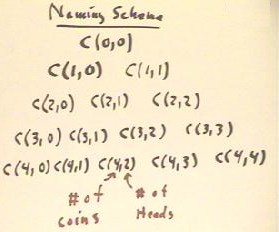 Naming Scheme
C(0,0)
C(1,0) C(1,1)
C(2,0) C(2,1) C(2,2)
C(3,0) C(3,1) C(3,2) C(3,3)
C(4,0) C(4,1) C(4,2) C(4,3) C(4,4)
# of # of
coins Heads